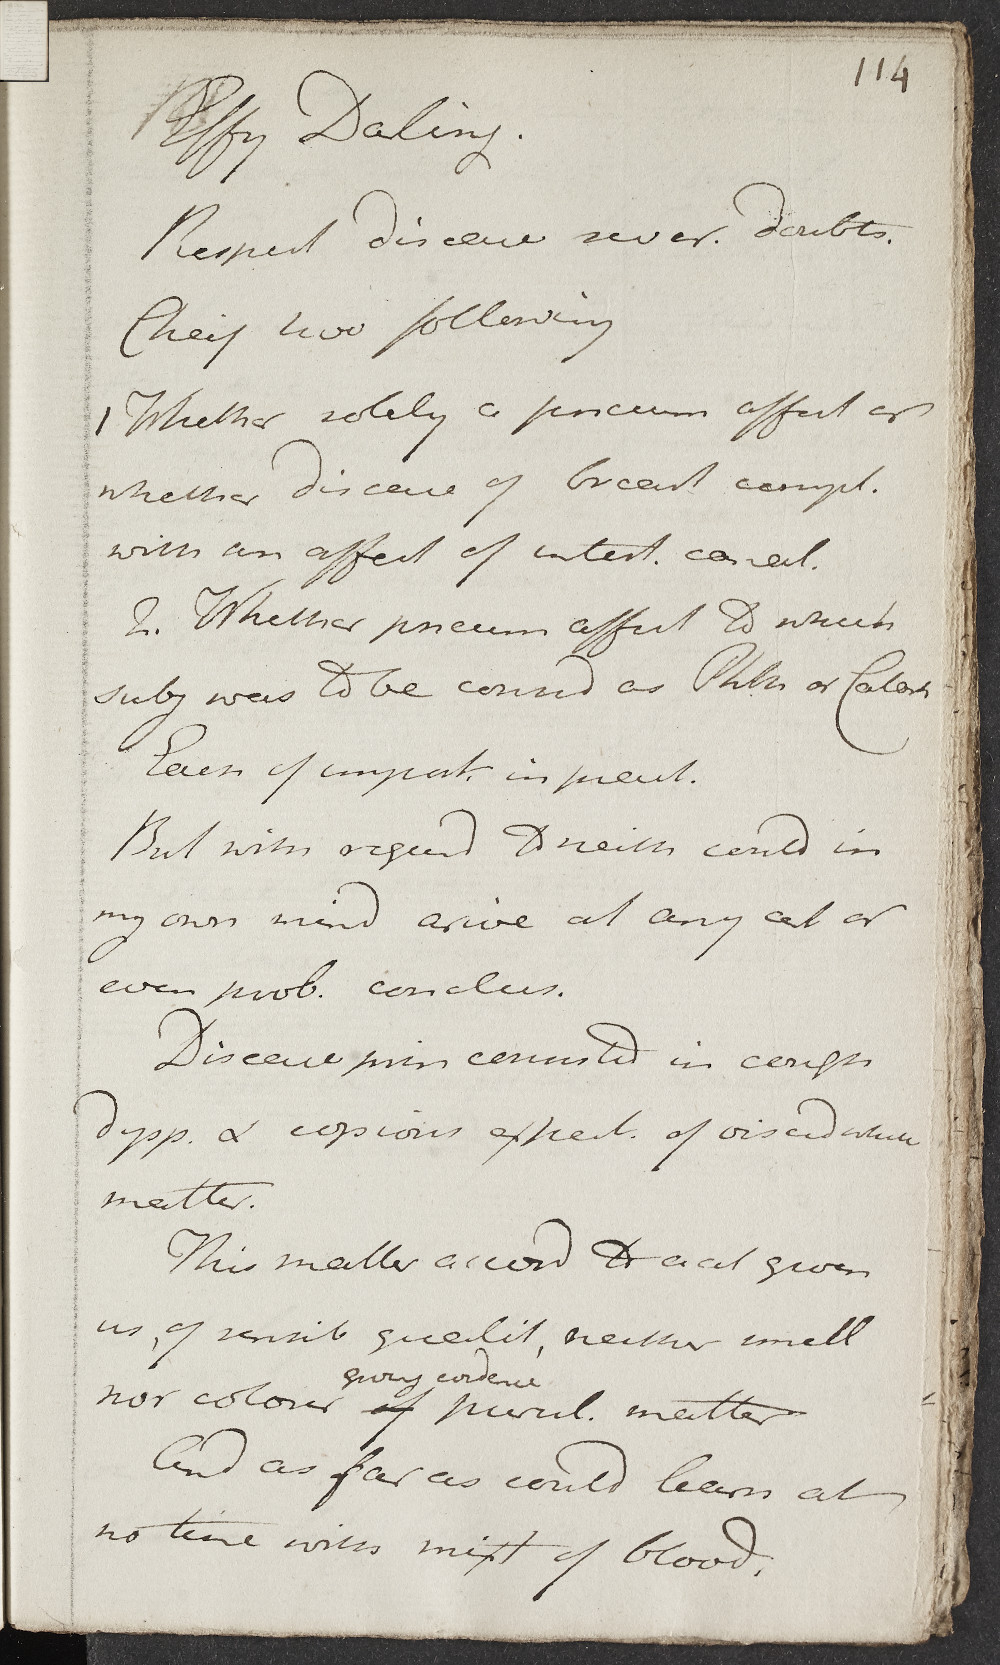 114
Effy Daling.
Respect disease sever. doubts.
Cheif two following
1 Whether solely a pneum affect or
whether disease of breast compl.
with an affect of intest. canal.
2. Whether pneum affect to which
subj was to be consid as Phth or Catarh
Each of import. in pract.
But with regard to neith could in
my own mind arive at any cert or
even prob. conclus.
Disease prin consisted in cough
dysp. & copious expect. of viscid white
matter.
This matter accord to acct given
us, of sensib qualit, neither smell
giving evidence
nor colour of purul. matter
And as far as could learn at
no time with mixt of blood.